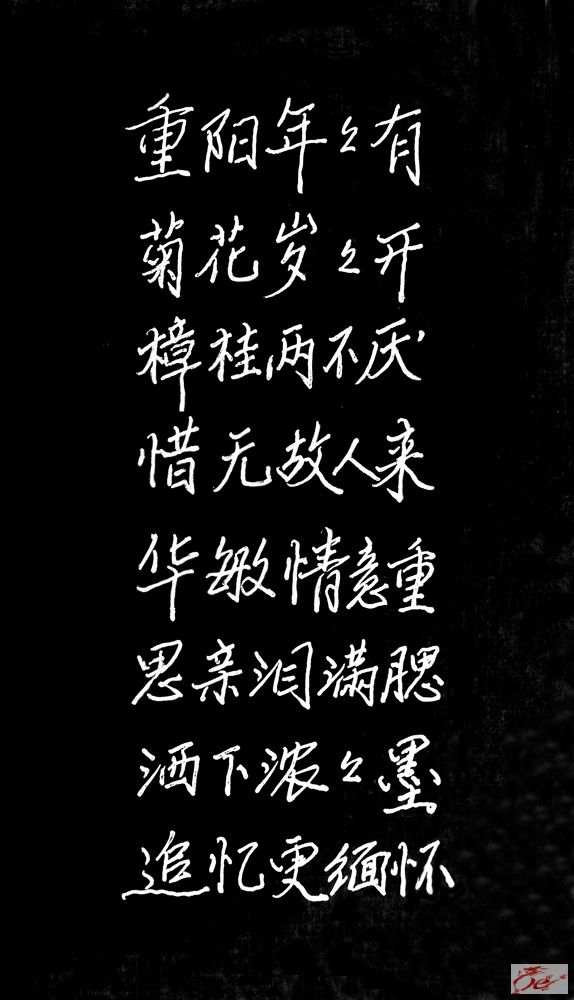 重阳年々有
菊花岁々开
樟桂两不厌
惜无故人来
华敏情意重
思亲泪满腮
洒下浓々墨
追忆更缅怀